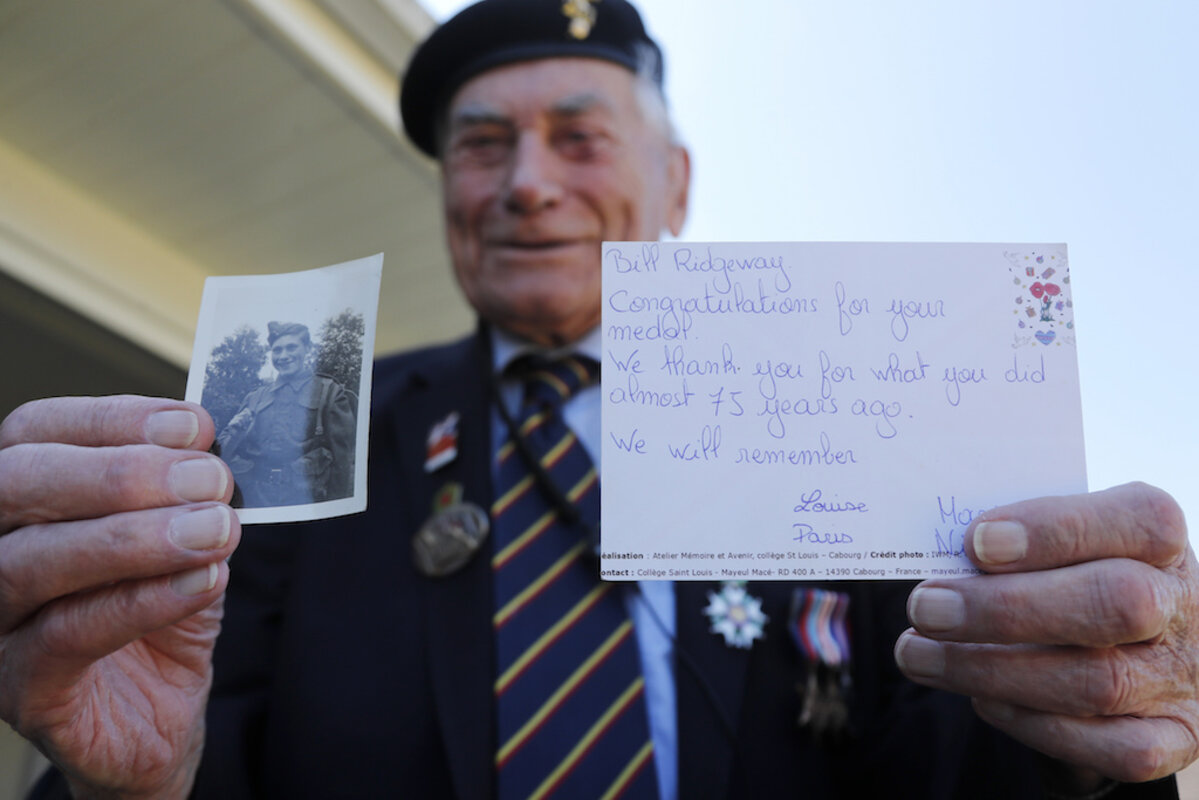 Bill Ridgeway.
Congratulations for your
medal.
We thank you for what you did
almost 75 years ago.
We will remember
Louise
Paris
éalisation : Atelier Mémoire et Avenir, collège St Louis – Cabourg / Crédit photo : IWM,
ontact : Collège Saint Louis - Mayeul Macé- RD 400 A – 14390 Cabourg – France – mayeul.mac